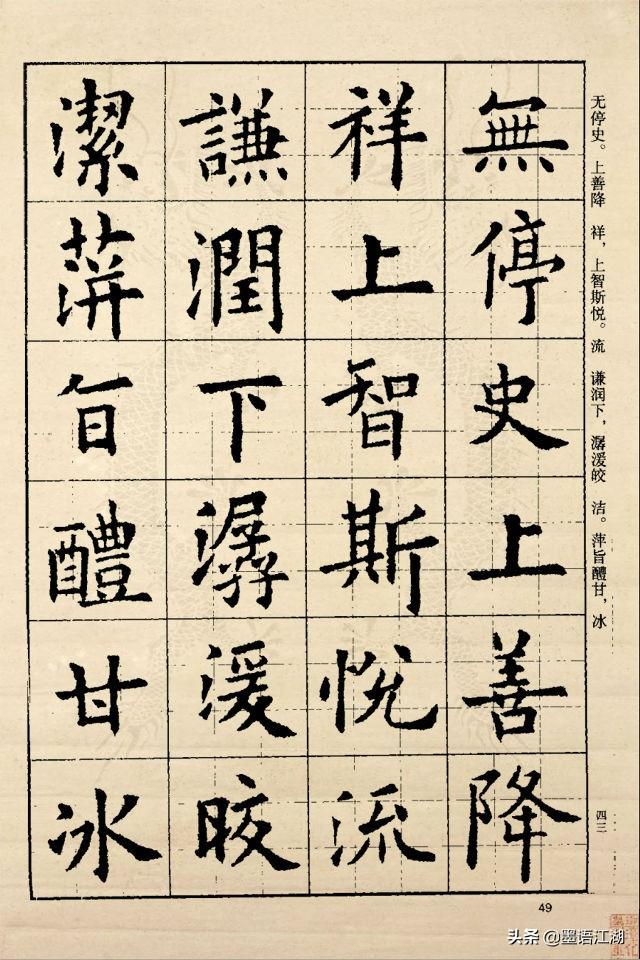 無停史上善降
祥上智斯悦流
謙潤下潺湲皎
潔蓱旨醴甘冰
无停史。上善降 祥，上智斯悦。流 谦润下，潺湲皎 洁。萍旨醴甘，冰
四三
49
头条 @墨语江湖